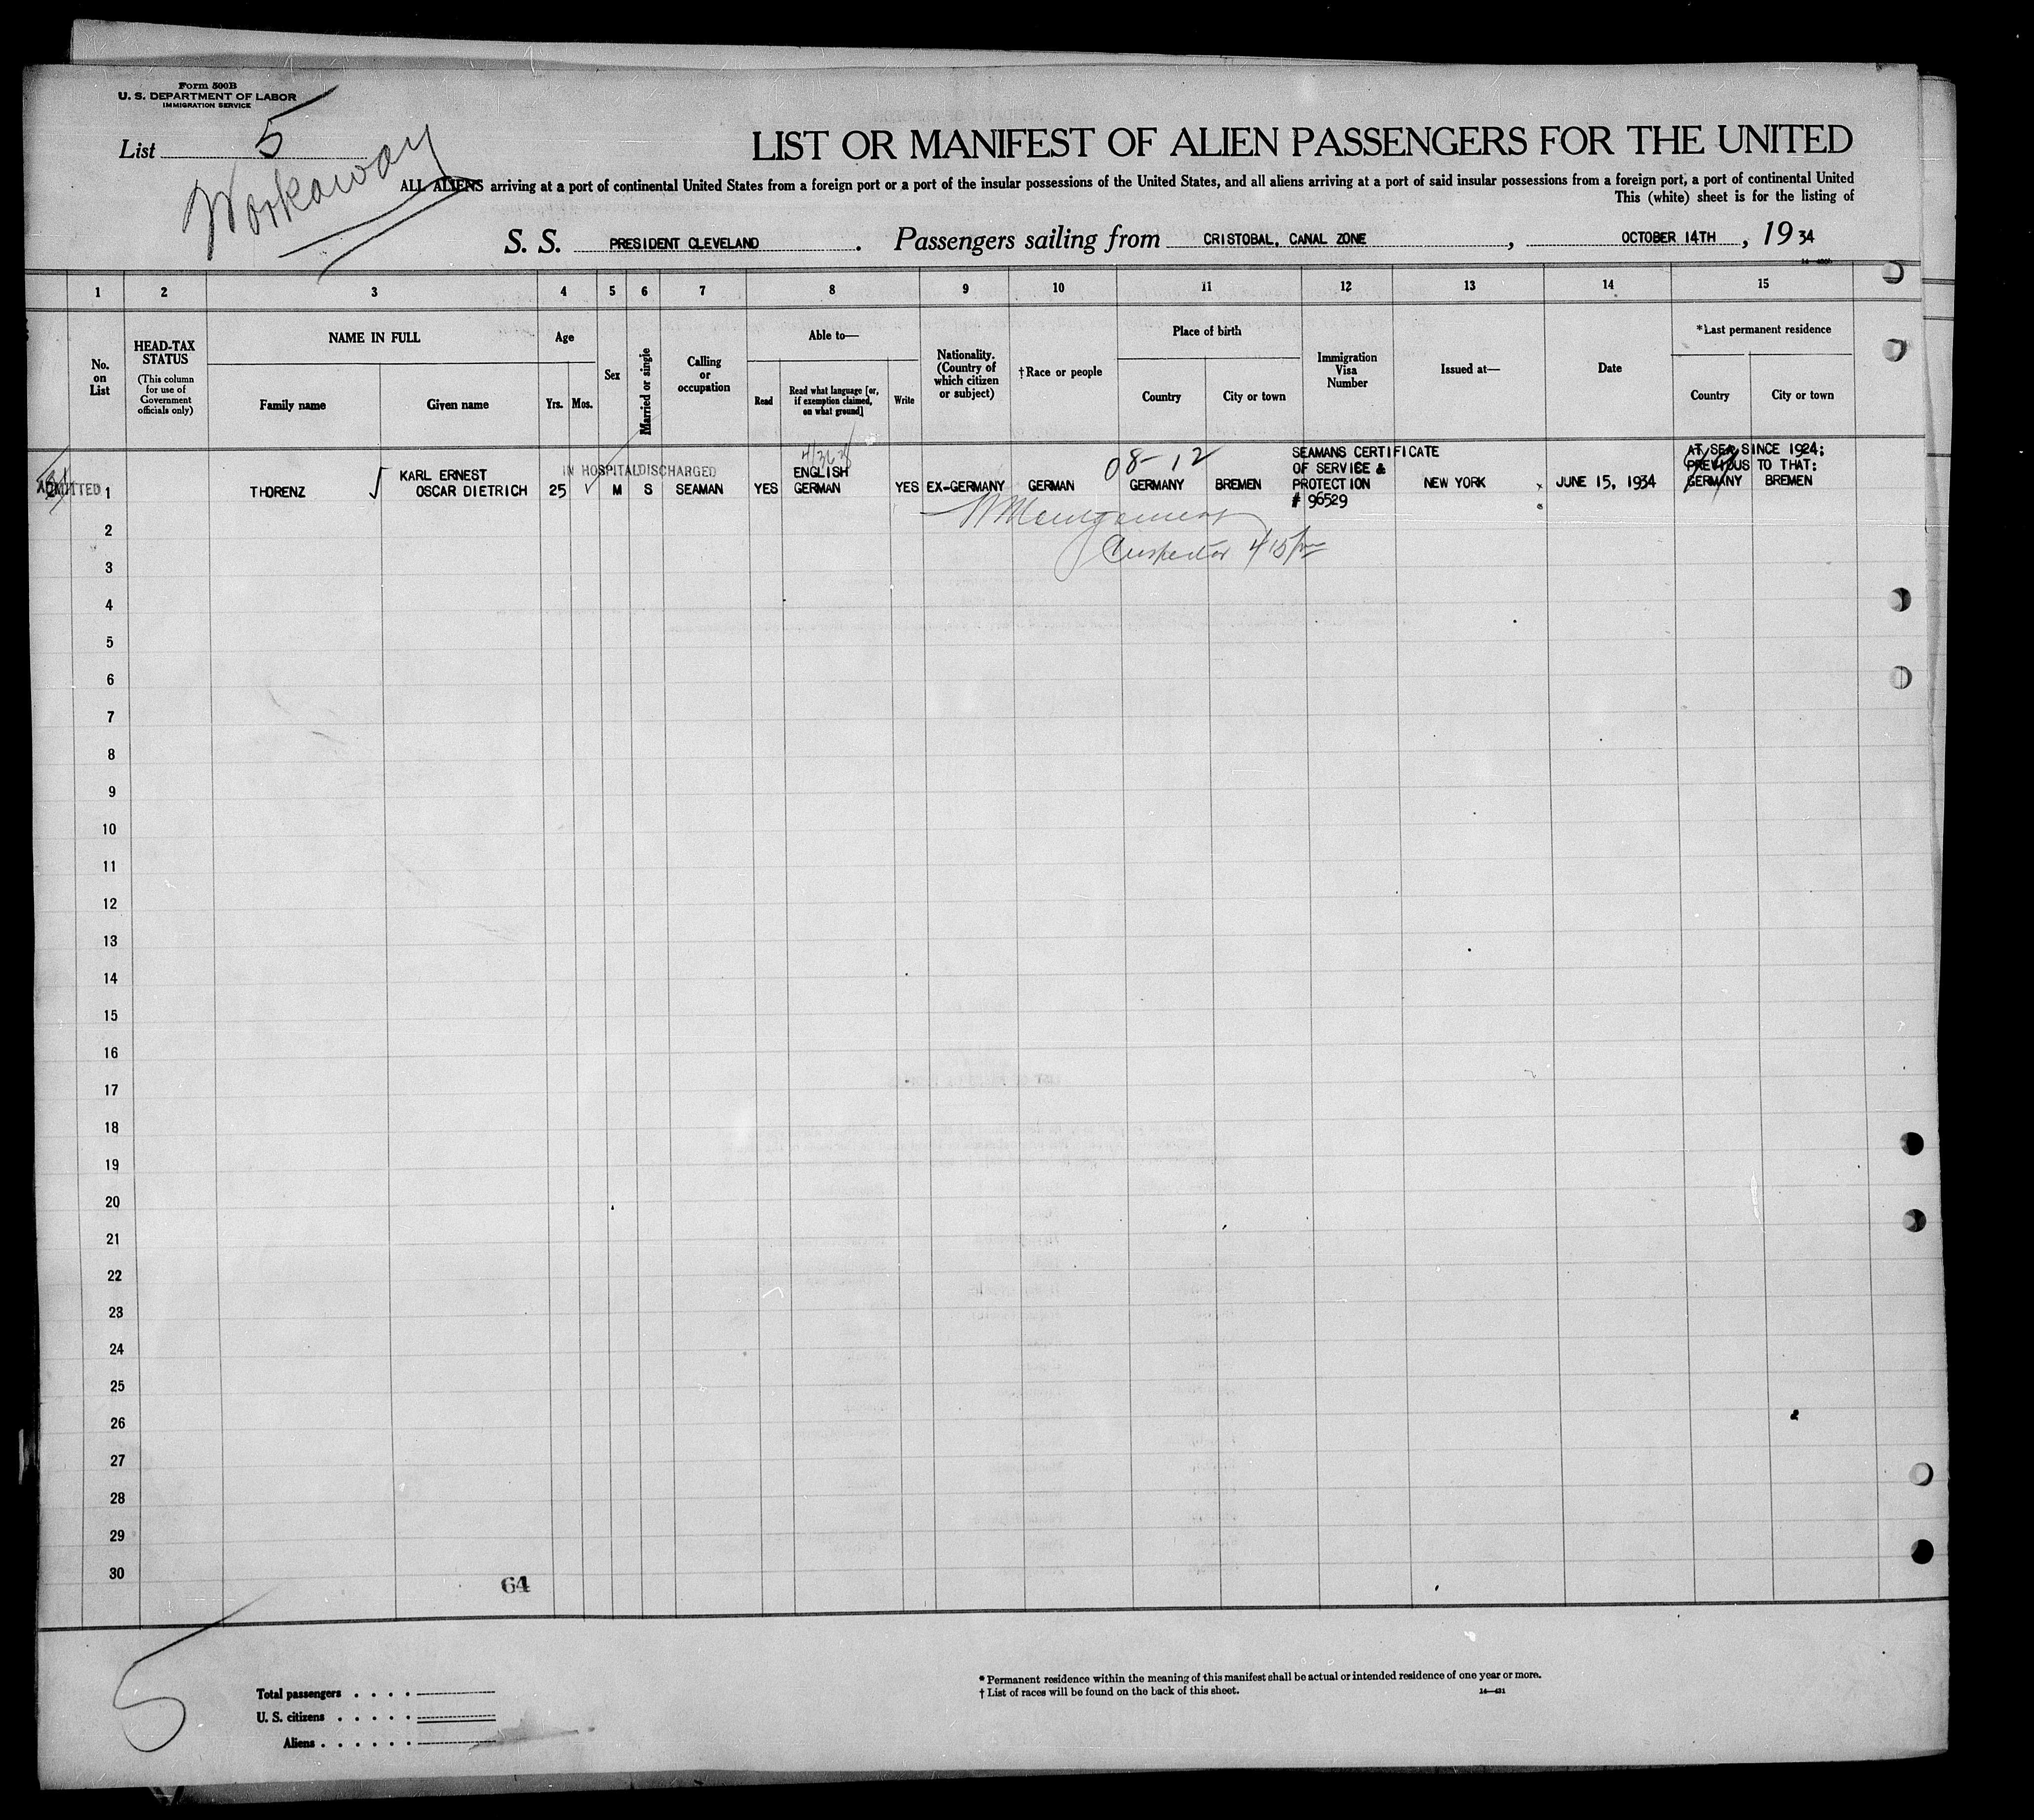 Form 500B
U. S. DEPARTMENT OF LABOR
IMMIGRATION SERVICE
List 5
Workaway
LIST OR MANIFEST OF ALIEN PASSENGERS FOR THE UNITED
ALL ALIENS arriving at a port of continental United States from a foreign port or a port of the insular possessions of the United States, and all aliens arriving at a port of said insular possessions from a foreign port, a port of continental United
This (white) sheet is for the listing of
S. S. PRESIDENT CLEVELAND . Passengers sailing from CRISTOBAL, CANAL ZONE , OCTOBER 14TH , 19 34
1 2 3 4 5 6 7 8 9 10 11 12 13 14 15
No. on List
HEAD-TAX STATUS
(This column for use of Government officials only)
NAME IN FULL
Family name Given name
Age
Yrs. Mos.
Sex
Married or single
Calling or occupation
Able to—
Read
Read what language [or, if exemption claimed, on what ground]
Write
Nationality. (Country of which citizen or subject)
†Race or people
Place of birth
Country City or town
Immigration Visa Number
Issued at—
Date
*Last permanent residence
Country City or town
ADMITTED 1 THORENZ √ KARL ERNEST OSCAR DIETRICH 25 √ M S SEAMAN YES ENGLISH GERMAN YES EX-GERMANY GERMAN GERMANY BREMEN SEAMANS CERTIFICATE OF SERVICE & PROTECTION # 96529 NEW YORK JUNE 15, 1934 AT SEA SINCE 1924; PREVIOUS TO THAT: GERMANY BREMEN
IN HOSPITAL DISCHARGED
08-12
Montgomery
Inspector 415 pm
2
3
4
5
6
7
8
9
10
11
12
13
14
15
16
17
18
19
20
21
22
23
24
25
26
27
28
29
30
64
5
Total passengers . . . .
U. S. citizens . . . . .
Aliens . . . . . .
* Permanent residence within the meaning of this manifest shall be actual or intended residence of one year or more.
† List of races will be found on the back of this sheet.
14—431